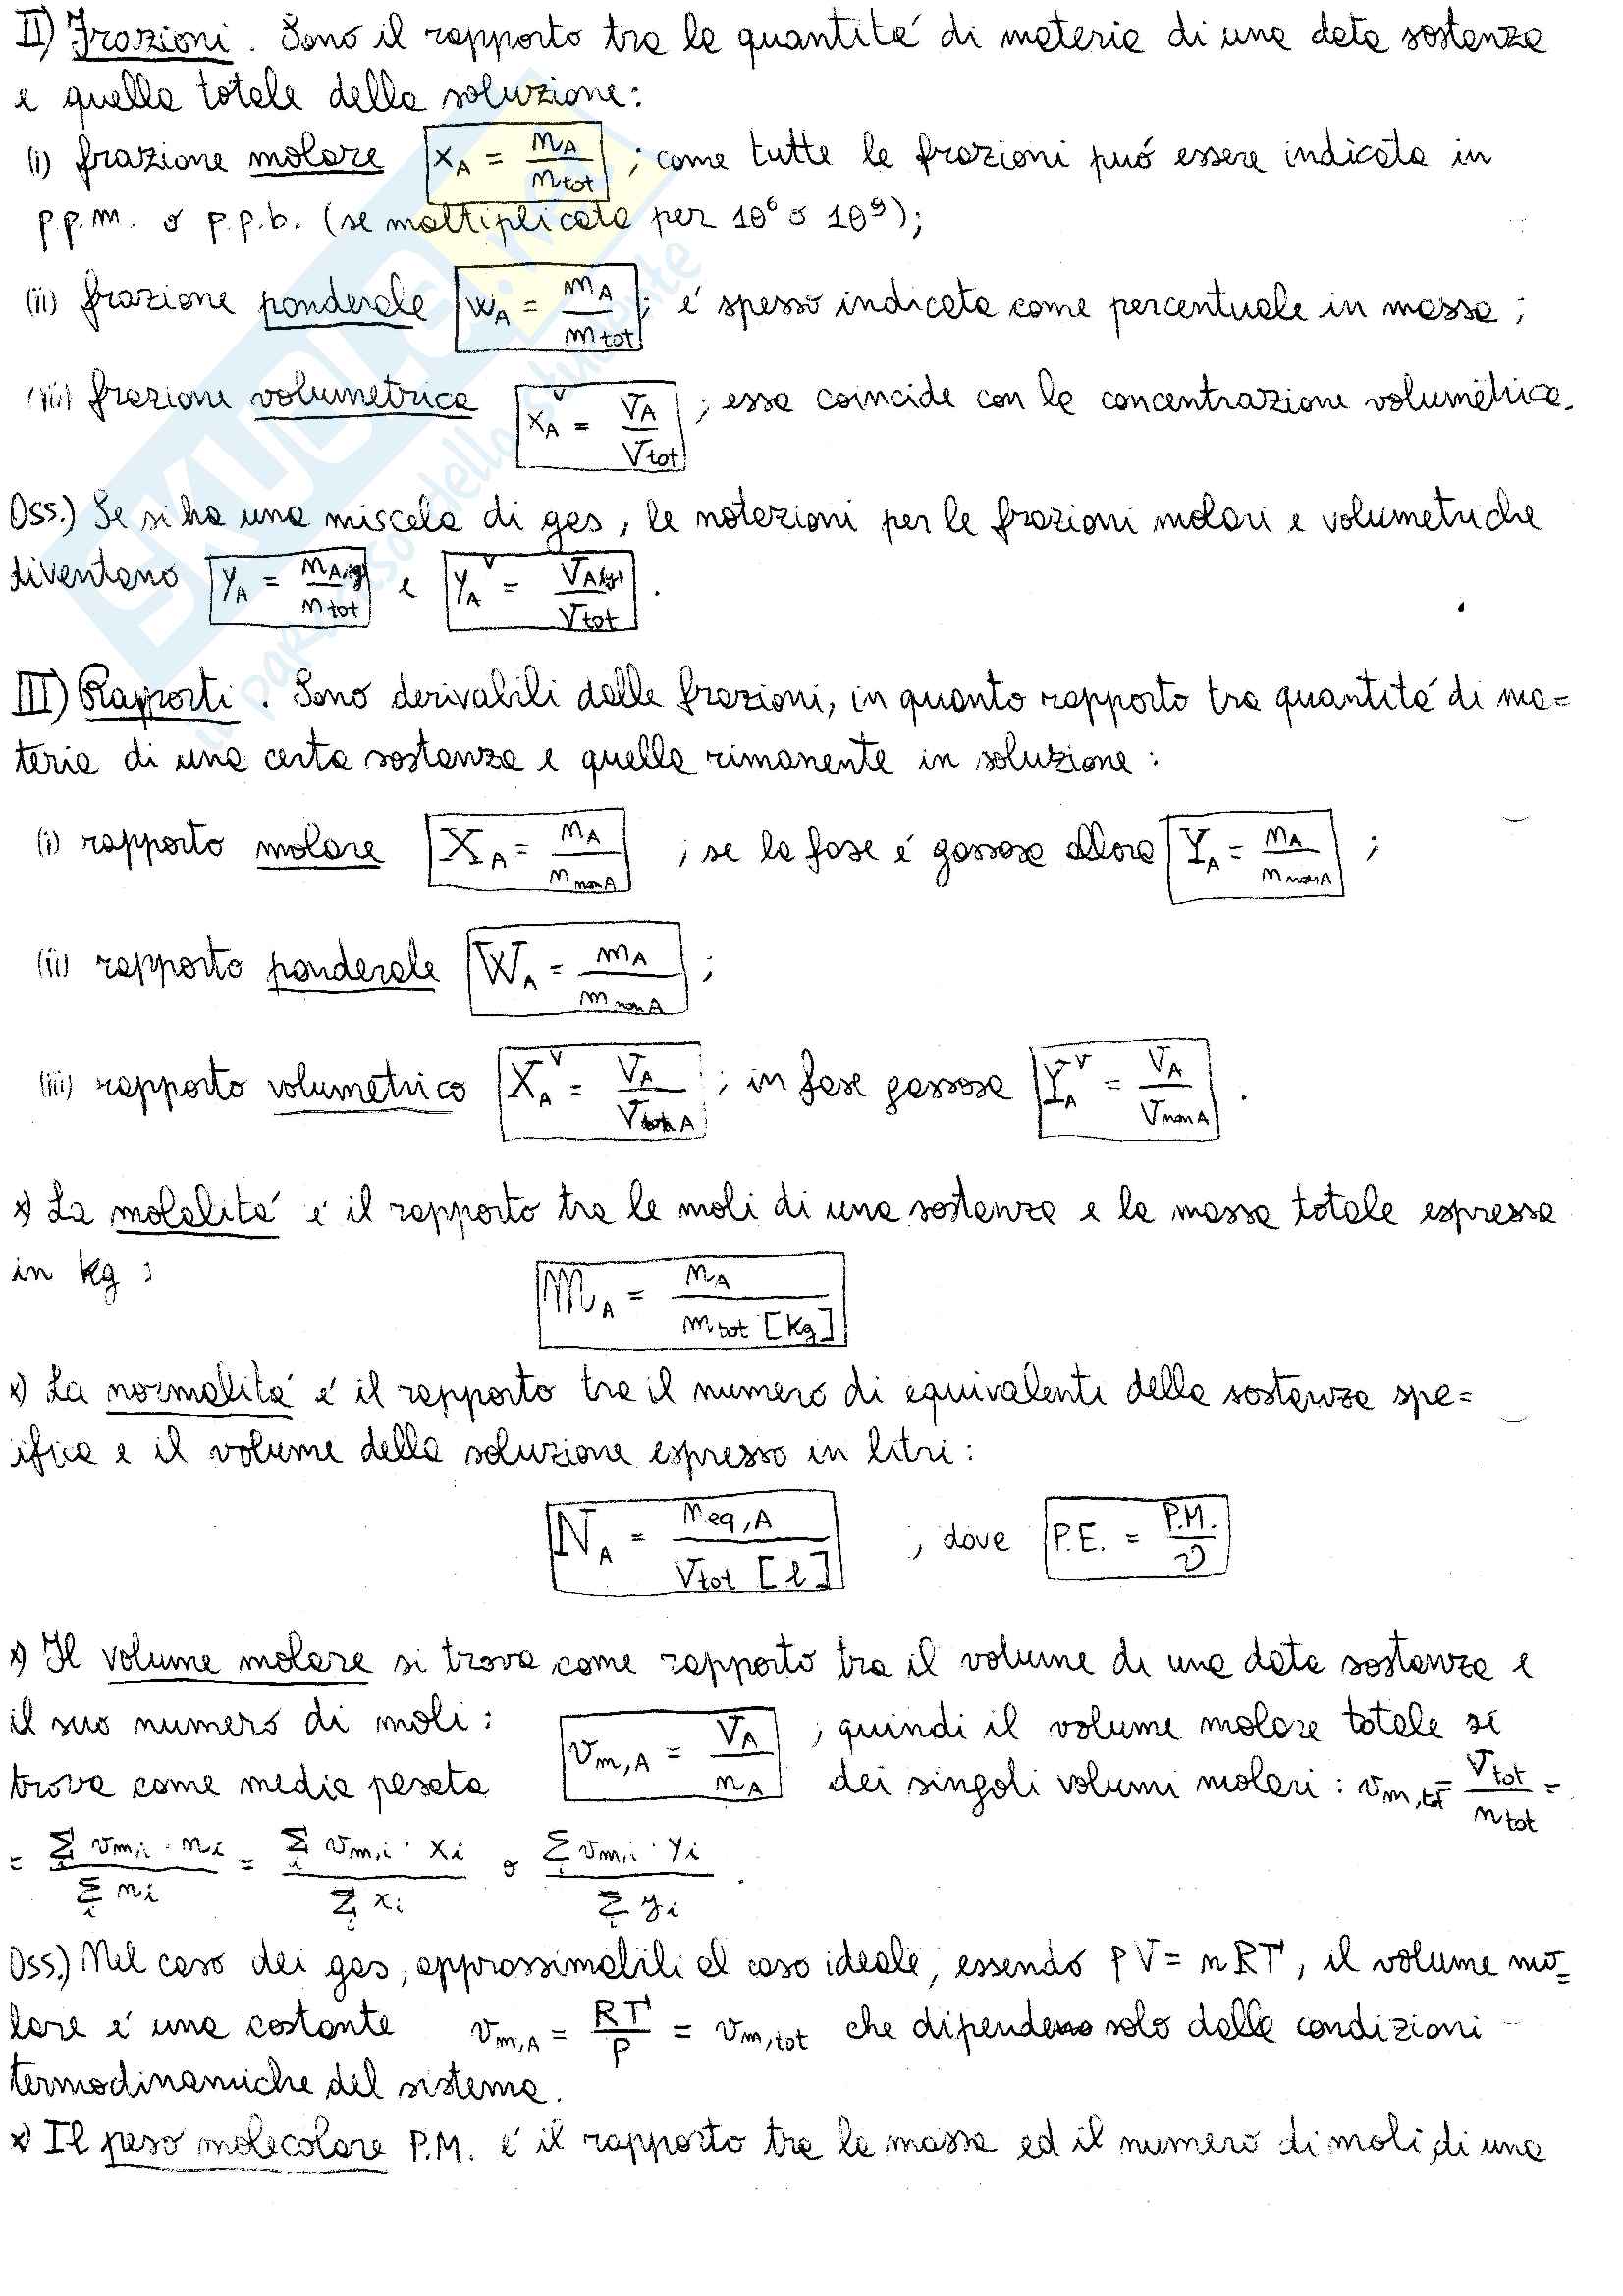 II) Frazioni. Sono il rapporto tra la quantità di materia di una data sostanza
e quella totale della soluzione:
(i) frazione molare x_A = n_A / n_tot ; come tutte le frazioni può essere indicata in
p.p.m. o p.p.b. (se moltiplicata per 10⁶ o 10⁹);
(ii) frazione ponderale w_A = m_A / m_tot ; é spesso indicata come percentuale in massa;
(iii) frazione volumetrica x_A^v = V_A / V_tot ; essa coincide con la concentrazione volumetrica.
Oss.) Se si ha una miscela di gas, le notazioni per le frazioni molari e volumetriche
diventano y_A = n_A,(g) / n_tot e y_A^v = V_A(g) / V_tot .
III) Rapporti. Sono derivabili dalle frazioni, in quanto rapporto tra quantità di ma=
teria di una certa sostanza e quella rimanente in soluzione:
(i) rapporto molare X_A = n_A / n_nonA ; se la fase é gassosa allora Y_A = n_A / n_nonA ;
(ii) rapporto ponderale W_A = m_A / m_nonA ;
(iii) rapporto volumetrico X_A^v = V_A / V_nonA ; in fase gassosa Y_A^v = V_A / V_nonA .
x) La molalità é il rapporto tra le moli di una sostanza e la massa totale espressa
in kg :
M_A = n_A / m_tot [kg]
x) La normalità é il rapporto tra il numero di equivalenti della sostanza spe=
ifica e il volume della soluzione espresso in litri:
N_A = n_eq,A / V_tot [l] , dove P.E. = P.M. / ν
x) Il volume molare si trova come rapporto tra il volume di una data sostanza e
il suo numero di moli: v_m,A = V_A / n_A , quindi il volume molare totale si
trova come media pesata dei singoli volumi molari : v_m,tot = V_tot / n_tot =
= Σ_i v_m,i · n_i / Σ_i n_i = Σ_i v_m,i · x_i / Σ_i x_i o Σ_i v_m,i · y_i / Σ_i y_i .
Oss.) Nel caso dei gas, approssimabili al caso ideale, essendo PV = nRT, il volume mo=
lare é una costante v_m,A = RT / P = v_m,tot che dipende solo dalle condizioni
termodinamiche del sistema.
x) Il peso molecolare P.M. é il rapporto tra la massa ed il numero di moli, di una